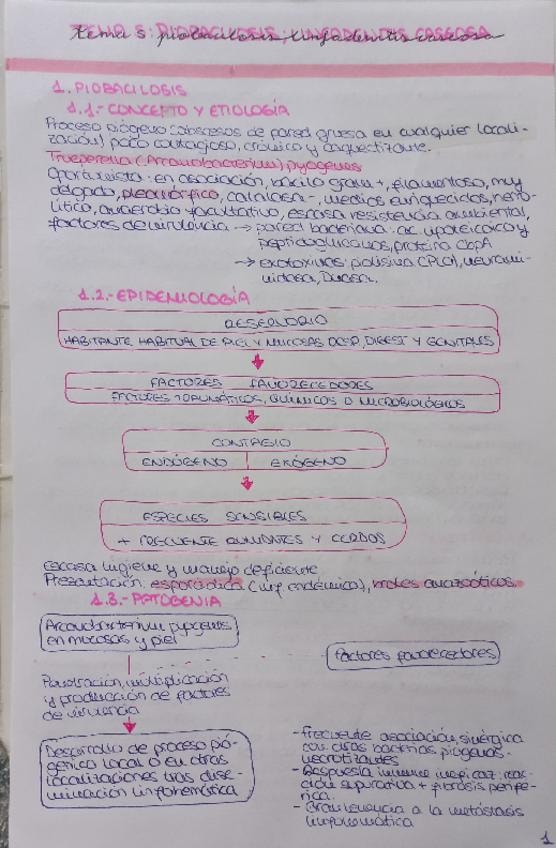 tema 5: piobacilosis; linfadenitis caseosa
1. PIOBACILOSIS
1.1.- CONCEPTO Y ETIOLOGÍA
Proceso piógeno (abscesos de pared gruesa en cualquier locali-
zación) poco contagioso, crónico y caquectizante.
Trueperella (Arcanobacterium) pyogenes
Oportunista: en asociación, bacilo gram +, filamentoso, muy
delgado, pleomórfico, catalasa -, medios enriquecidos, hemo-
lítico, anaerobio facultativo, escasa resistencia ambiental,
factores de virulencia → pared bacteriana: ac. lipoteicoico y
peptidoglucanos, proteína CbpA
→ exotoxinas: piolisina (PLO), neurami-
nidasa, DNasa.
1.2.- EPIDEMIOLOGÍA
RESERVORIO
HABITANTE HABITUAL DE PIEL Y MUCOSAS RESP, DIGEST Y GENITALES
FACTORES FAVORECEDORES
FACTORES TRAUMÁTICOS, QUÍMICOS O MICROBIOLÓGICOS
CONTAGIO
ENDÓGENO EXÓGENO
ESPECIES SENSIBLES
+ FRECUENTE RUMIANTES Y CERDOS
Escasa higiene y manejo deficiente
Presentación: esporádica (inf. endémica), brotes anazoóticos.
1.3.- PATOGENIA
Arcanobacterium pyogenes
en mucosas y piel
Factores favorecedores
Penetración, multiplicación
y producción de factores
de virulencia
Desarrollo de proceso pió-
génico local o en otras
localizaciones tras dise-
minación linfohemática
- Frecuente asociación sinérgica
con otras bacterias piógenas-
necrotizantes
- Respuesta inmune ineficaz: reac-
ción supurativa + fibrosis perifé-
rica.
- Gran tendencia a la metástasis
linfohemática
1